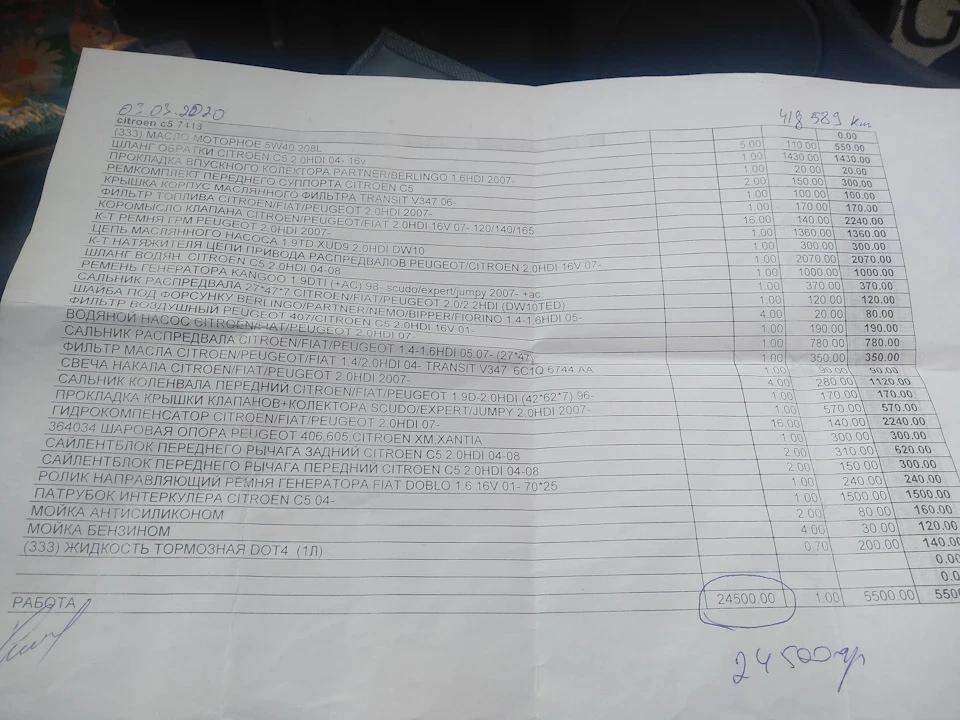 03.03.2020 418 589 км
citroen c5 7413 0.00
(333) МАСЛО МОТОРНОЕ 5W40 208L 5.00 110.00 550.00
ШЛАНГ ОБРАТКИ CITROEN C5 2.0HDI 04- 16v 1.00 1430.00 1430.00
ПРОКЛАДКА ВПУСКНОГО КОЛЕКТОРА PARTNER/BERLINGO 1.6HDI 2007- 1.00 20.00 20.00
РЕМКОМПЛЕКТ ПЕРЕДНЕГО СУППОРТА CITROEN C5 2.00 150.00 300.00
КРЫШКА КОРПУС МАСЛЯННОГО ФИЛЬТРА TRANSIT V347 06- 1.00 100.00 100.00
ФИЛЬТР ТОПЛИВА CITROEN/FIAT/PEUGEOT 2.0HDI 2007- 1.00 170.00 170.00
КОРОМЫСЛО КЛАПАНА CITROEN/PEUGEOT/FIAT 2.0HDI 16V 07- 120/140/165 16.00 140.00 2240.00
К-Т РЕМНЯ ГРМ PEUGEOT 2.0HDI 2007- 1.00 1360.00 1360.00
ЦЕПЬ МАСЛЯННОГО НАСОСА 1.9TD XUD9 2.0HDI DW10 1.00 300.00 300.00
К-Т НАТЯЖИТЕЛЯ ЦЕПИ ПРИВОДА РАСПРЕДВАЛОВ PEUGEOT/CITROEN 2.0HDI 16V 07- 1.00 2070.00 2070.00
ШЛАНГ ВОДЯН. CITROEN C5 2.0HDI 04-08 1.00 1000.00 1000.00
РЕМЕНЬ ГЕНЕРАТОРА KANGOO 1.9DTI (+AC) 98- scudo/expert/jumpy 2007- +ac 1.00 370.00 370.00
САЛЬНИК РАСПРЕДВАЛА 27*47*7 CITROEN/FIAT/PEUGEOT 2.0/2.2HDI (DW10TED) 1.00 120.00 120.00
ШАЙБА ПОД ФОРСУНКУ BERLINGO/PARTNER/NEMO/BIPPER/FIORINO 1.4-1.6HDI 05- 4.00 20.00 80.00
ФИЛЬТР ВОЗДУШНЫЙ PEUGEOT 407/CITROEN C5 2.0HDI 16V 01- 1.00 190.00 190.00
ВОДЯНОЙ НАСОС CITROEN/FIAT/PEUGEOT 2.0HDI 07- 1.00 780.00 780.00
САЛЬНИК РАСПРЕДВАЛА CITROEN/FIAT/PEUGEOT 1.4-1.6HDI 05.07- (27*47* 1.00 350.00 350.00
ФИЛЬТР МАСЛА CITROEN/PEUGEOT/FIAT 1.4/2.0HDI 04- TRANSIT V347 6C1Q 6744 AA 1.00 90.00 90.00
СВЕЧА НАКАЛА CITROEN/FIAT/PEUGEOT 2.0HDI 2007- 4.00 280.00 1120.00
САЛЬНИК КОЛЕНВАЛА ПЕРЕДНИЙ CITROEN/FIAT/PEUGEOT 1.9D-2.0HDI (42*62*7) 96- 1.00 170.00 170.00
ПРОКЛАДКА КРЫШКИ КЛАПАНОВ+КОЛЕКТОРА SCUDO/EXPERT/JUMPY 2.0HDI 2007- 1.00 570.00 570.00
ГИДРОКОМПЕНСАТОР CITROEN/FIAT/PEUGEOT 2.0HDI 07- 16.00 140.00 2240.00
364034 ШАРОВАЯ ОПОРА PEUGEOT 406,605,CITROEN XM,XANTIA 1.00 300.00 300.00
САЙЛЕНТБЛОК ПЕРЕДНЕГО РЫЧАГА ЗАДНИЙ CITROEN C5 2.0HDI 04-08 2.00 310.00 620.00
САЙЛЕНТБЛОК ПЕРЕДНЕГО РЫЧАГА ПЕРЕДНИЙ CITROEN C5 2.0HDI 04-08 2.00 150.00 300.00
РОЛИК НАПРАВЛЯЮЩИЙ РЕМНЯ ГЕНЕРАТОРА FIAT DOBLO 1.6 16V 01- 70*25 1.00 240.00 240.00
ПАТРУБОК ИНТЕРКУЛЕРА CITROEN C5 04- 1.00 1500.00 1500.00
МОЙКА АНТИСИЛИКОНОМ 2.00 80.00 160.00
МОЙКА БЕНЗИНОМ 4.00 30.00 120.00
(333) ЖИДКОСТЬ ТОРМОЗНАЯ DOT4 (1Л) 0.70 200.00 140.00
0.00
0.0
РАБОТА 24500.00 1.00 5500.00 5500
24500гр
G